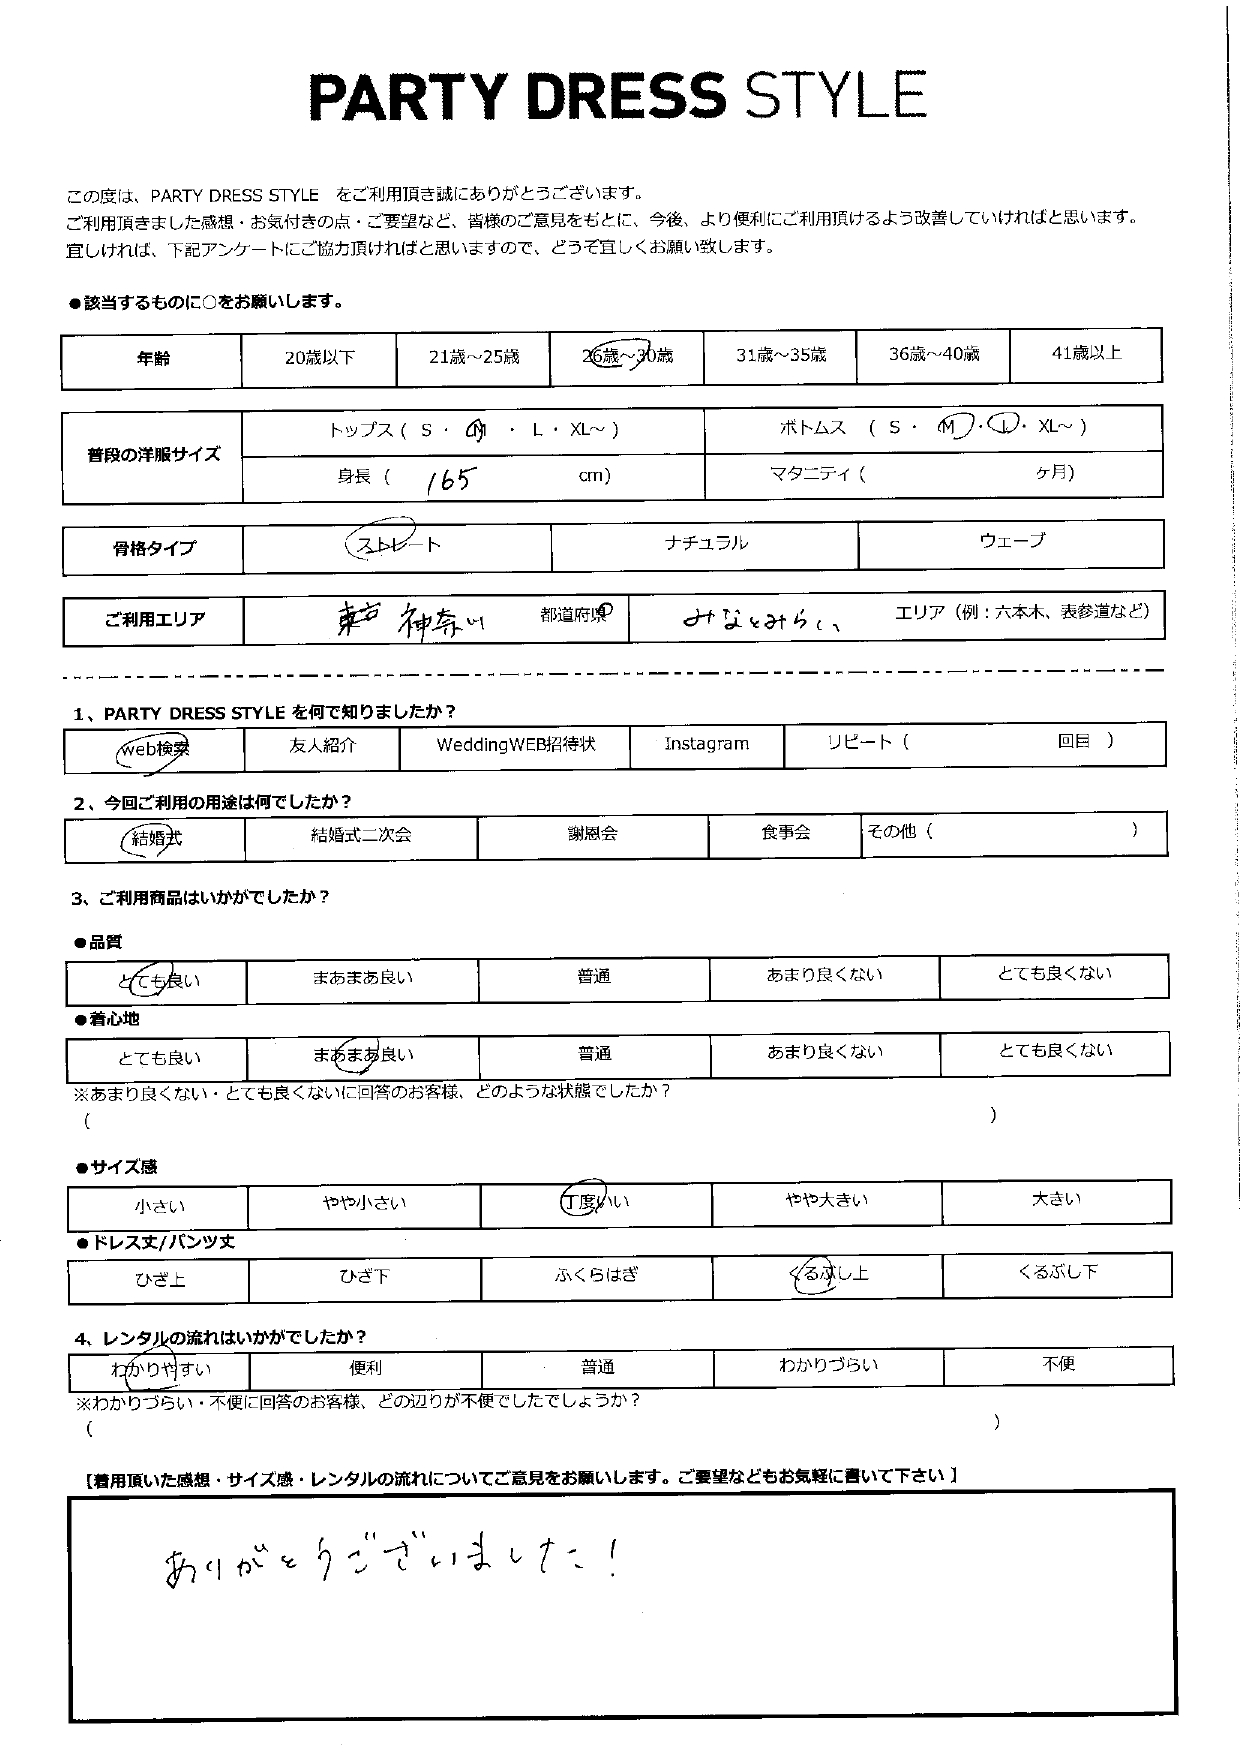 PARTY DRESS STYLE
この度は、PARTY DRESS STYLE をご利用頂き誠にありがとうございます。
ご利用頂きました感想・お気付きの点・ご要望など、皆様のご意見をもとに、今後、より便利にご利用頂けるよう改善していければと思います。
宜しければ、下記アンケートにご協力頂ければと思いますので、どうぞ宜しくお願い致します。
●該当するものに○をお願いします。
年齢 20歳以下 21歳～25歳 26歳～30歳 31歳～35歳 36歳～40歳 41歳以上
普段の洋服サイズ トップス ( S ・ M ・ L ・ XL～ ) ボトムス ( S ・ M ・ L ・ XL～ )
身長 ( 165 cm) マタニティ ( ヶ月)
骨格タイプ ストレート ナチュラル ウェーブ
ご利用エリア 東京 神奈川 都道府県 みなとみらい エリア（例：六本木、表参道など）
1、PARTY DRESS STYLE を何で知りましたか？
web検索 友人紹介 WeddingWEB招待状 Instagram リピート ( 回目 )
2、今回ご利用の用途は何でしたか？
結婚式 結婚式二次会 謝恩会 食事会 その他 ( )
3、ご利用商品はいかがでしたか？
●品質
とても良い まあまあ良い 普通 あまり良くない とても良くない
●着心地
とても良い まあまあ良い 普通 あまり良くない とても良くない
※あまり良くない・とても良くないに回答のお客様、どのような状態でしたか？
( )
●サイズ感
小さい やや小さい 丁度いい やや大きい 大きい
●ドレス丈/パンツ丈
ひざ上 ひざ下 ふくらはぎ くるぶし上 くるぶし下
4、レンタルの流れはいかがでしたか？
わかりやすい 便利 普通 わかりづらい 不便
※わかりづらい・不便に回答のお客様、どの辺りが不便でしたでしょうか？
( )
【着用頂いた感想・サイズ感・レンタルの流れについてご意見をお願いします。ご要望などもお気軽に書いて下さい】
ありがとうございました！